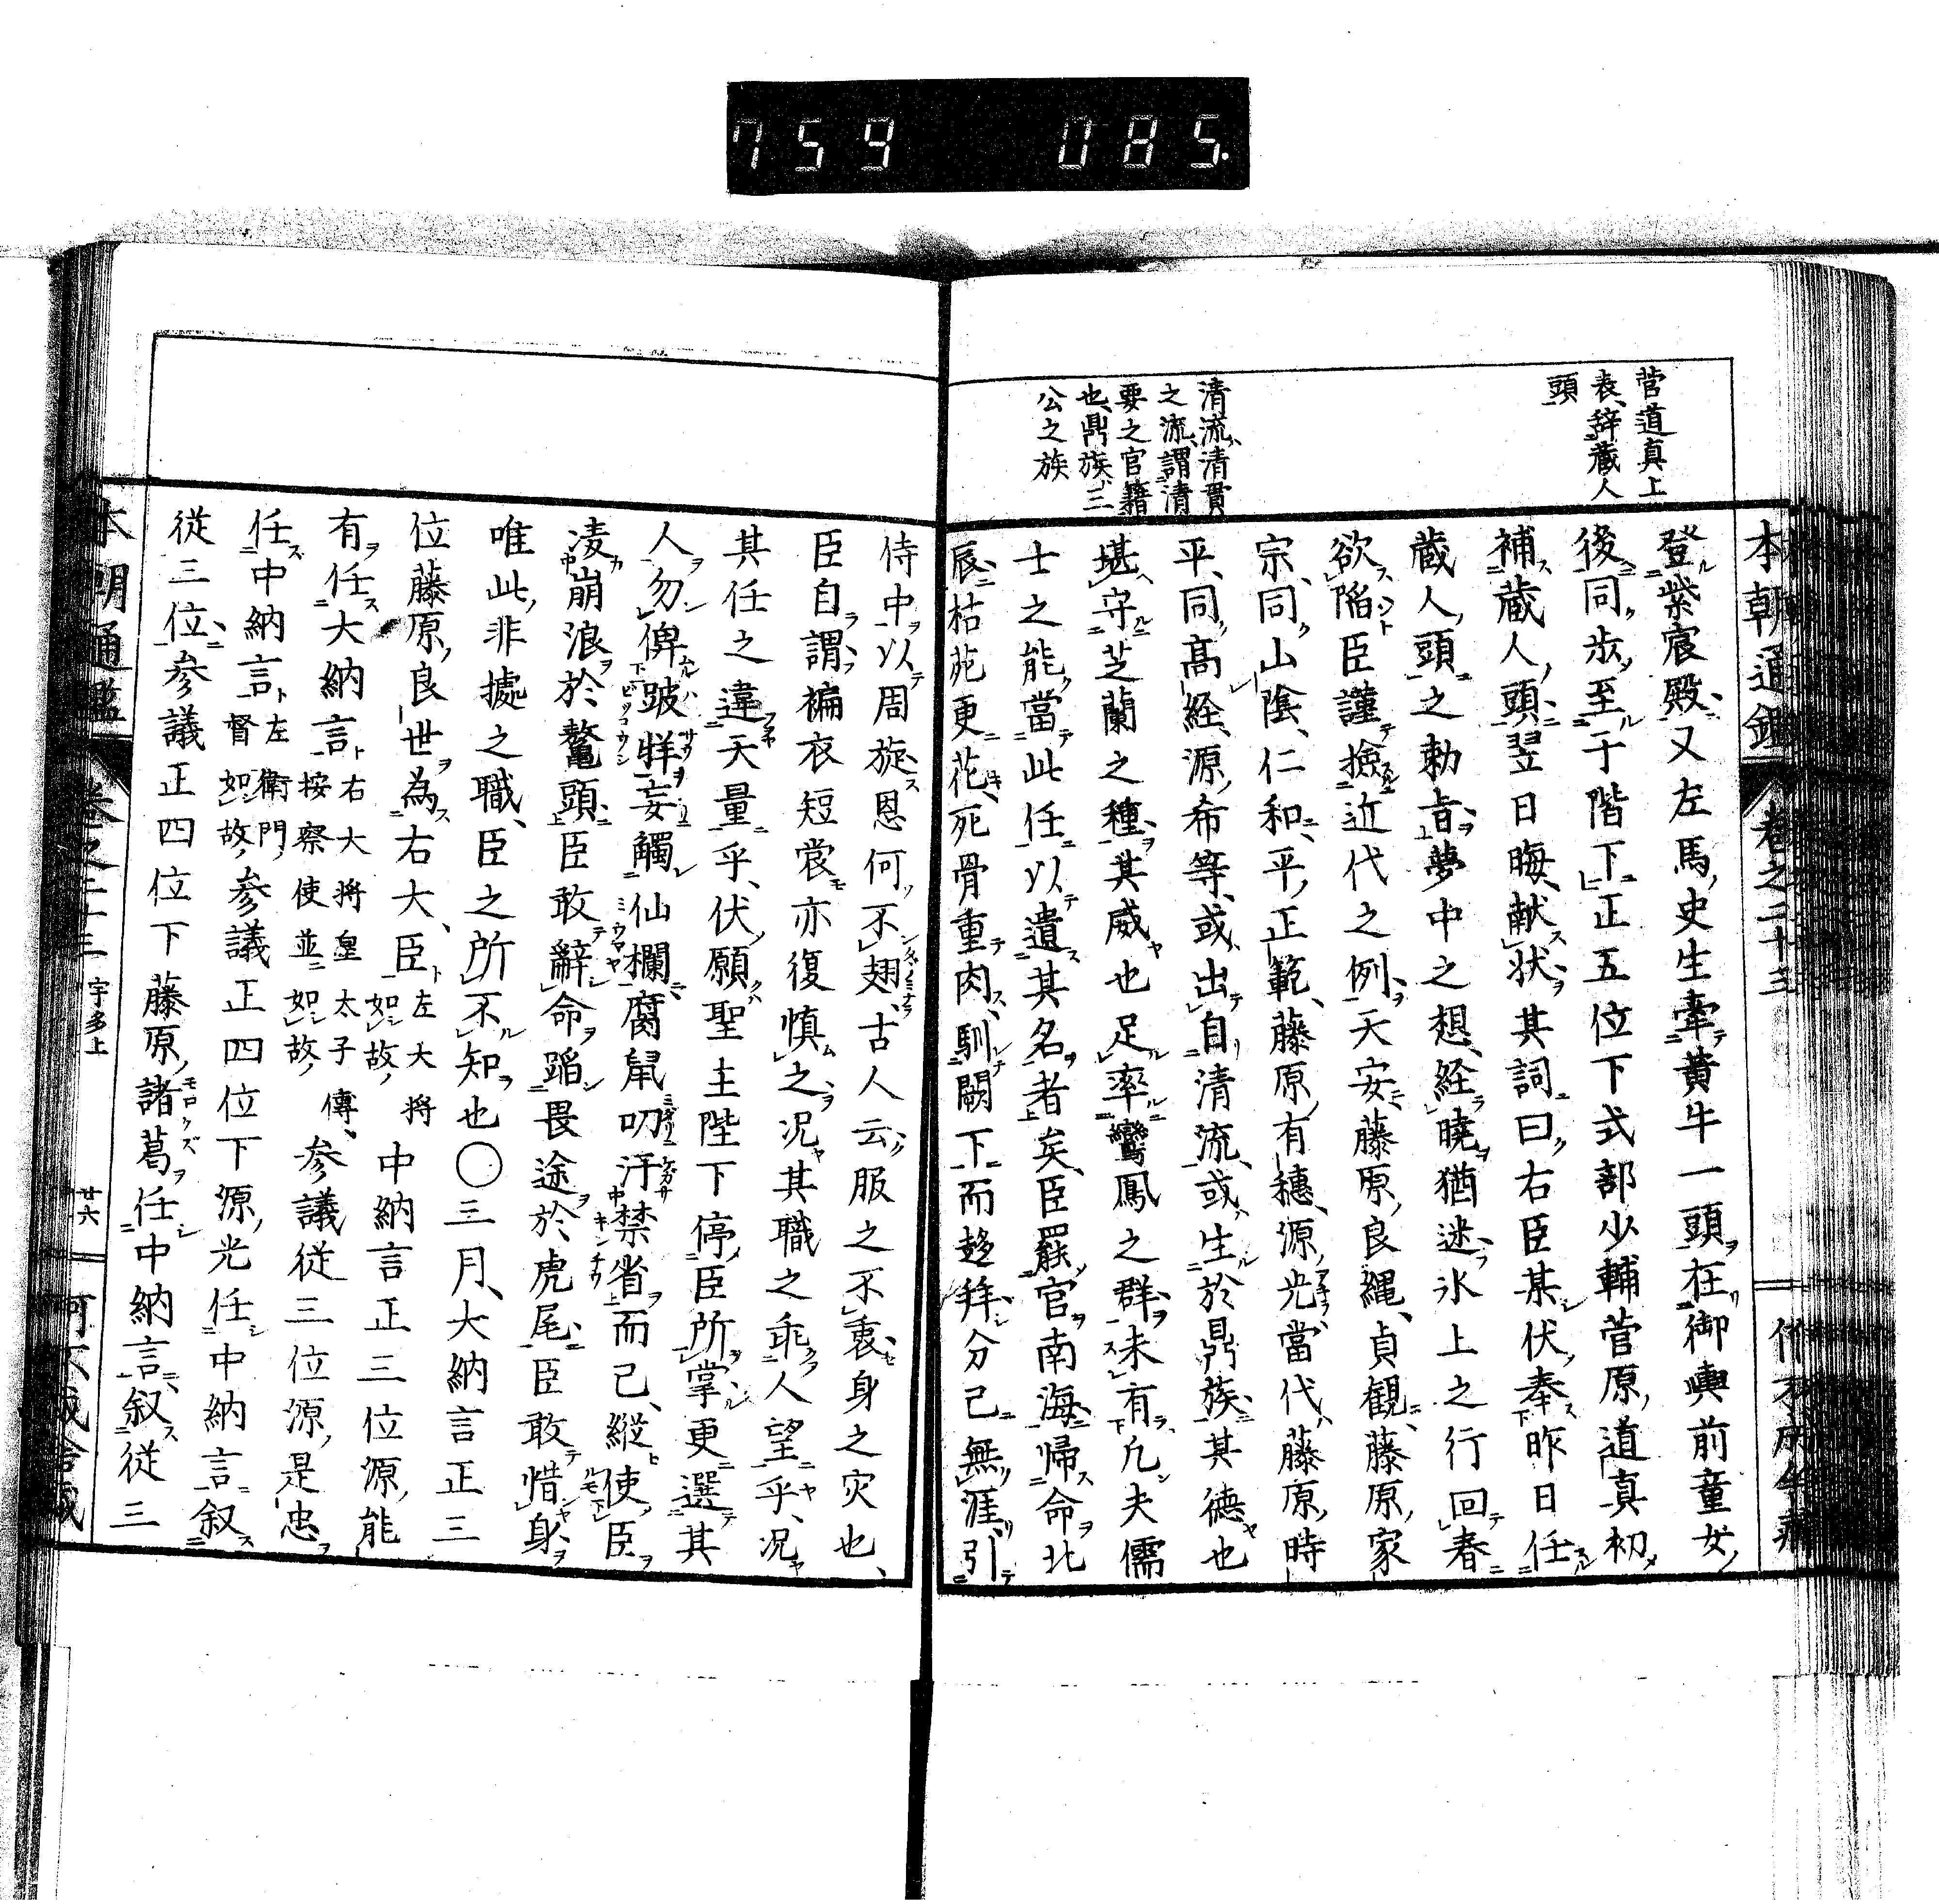 759 085.
菅道真上
表辞蔵人
頭
清流清貫
之流謂清
要之官籍
也鼎族三
公之族
本朝通鑑 巻之二十三
登紫宸殿又左馬史生牽黄牛一頭在御輿前童女
後同歩至于階下正五位下式部少輔菅原道真初
補蔵人頭翌日晦献状其詞曰右臣某伏奉昨日任
蔵人頭之勅旨夢中之想経暁猶迷氷上之行回春
欲陥臣謹撿近代之例天安藤原良縄貞観藤原家
宗同山陰仁和平正範藤原有穂源光當代藤原時
平同高経源希等或出自清流或生於鼎族其徳也
堪守芝蘭之種其威也足率鸞鳳之群未有凡夫儒
士之能當此任以遺其名者矣臣罷官南海帰命北
辰枯苑更花死骨重肉馴闕下而趍拜分己無涯引
侍中以周旋恩何不翅古人云服之不衷身之灾也
臣自謂褊衣短裳亦復慎之况其職之乖人望乎况
其任之違天量乎伏願聖主陛下停臣所掌更選其
人勿俾跛牂妄觸仙欄腐鼠叨汙禁省而己縦使臣
凌崩浪於鼇頭臣敢辭命蹈畏途於虎尾臣敢惜身
唯此非據之職臣之所不知也○三月大納言正三
位藤原良世為右大臣左大将如故中納言正三位源能
有任大納言右大将皇太子傳按察使並如故参議従三位源是忠
任中納言左衛門督如故参議正四位下源光任中納言叙
従三位参議正四位下藤原諸葛任中納言叙従三
本朝通鑑 巻之二十三 宇多上 廿六